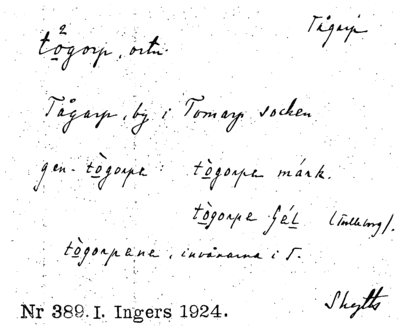 Tågarp
tògorp, ortn.
Tågarp, by i Tomarp socken.
gen. tògorpa: tògorpa márk.
tògorpa Gál (Trelleborg).
tògorpana, invånarna i T.
Nr 389. I. Ingers 1924.
Skytts